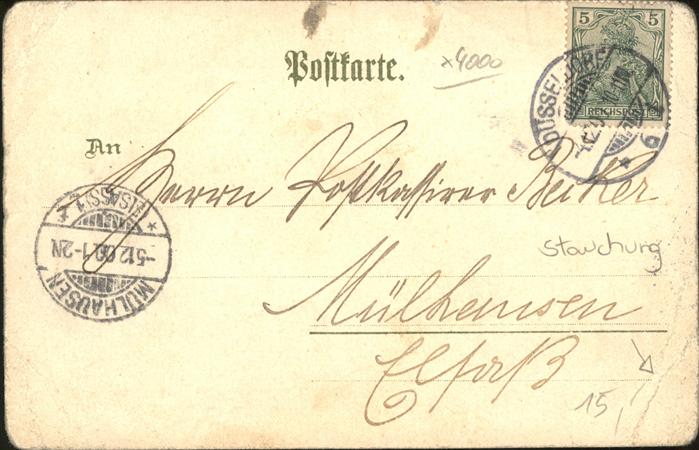 5 5
REICHSPOST
DÜSSELDORF
Postkarte.
x4000
An
Herrn Postkassirer Becker
(ELSASS) 1
-5.12.00.1-2N
MÜLHAUSEN
Stauchung
Mülhausen
Elsaß
15,-